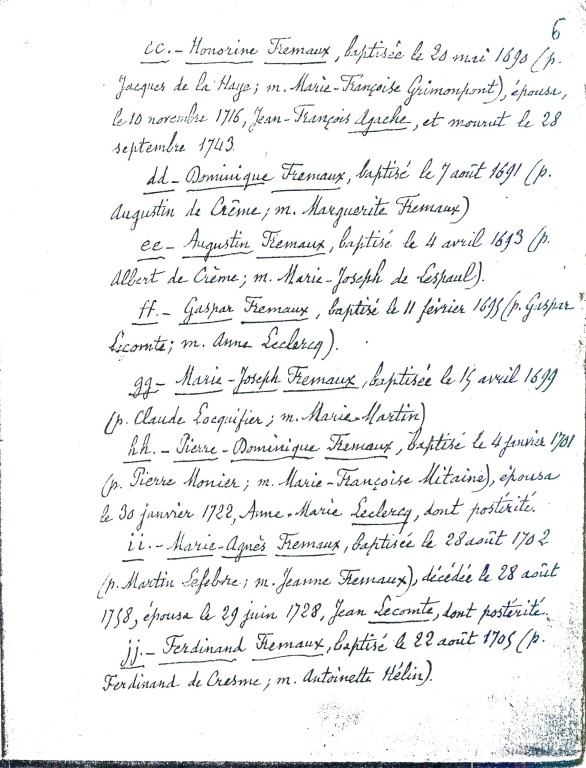 6
cc.- Honorine Fremaux, baptisée le 20 mai 1690 (p.
Jacques de la Haye; m. Marie-Françoise Grimonpont), épousa,
le 10 novembre 1716, Jean-François Agache, et mourut le 28
septembre 1743.
dd- Dominique Fremaux, baptisé le 7 août 1691 (p.
Augustin de Crême; m. Marguerite Fremaux)
ee- Augustin Fremaux, baptisé le 4 avril 1693 (p.
Albert de Crème; m. Marie-Joseph de Lespaul).
ff.- Gaspar Fremaux, baptisé le 11 février 1695 (p. Gaspar
Lecomte; m. Anne Leclercq).
gg- Marie-Joseph Fremaux, baptisée le 15 avril 1699
(p. Claude Locquifier; m. Marie-Martin)
hh.- Pierre-Dominique Fremaux, baptisé le 4 janvier 1701
(p. Pierre Monier; m. Marie-Françoise Mitaine), épousa
le 30 janvier 1722, Anne-Marie Leclercq, dont postérité.
ii.- Marie-Agnès Fremaux, baptisée le 28 août 1702
(p. Martin Lefebvre; m. Jeanne Fremaux), décédée le 28 août
1758, épousa le 29 juin 1728, Jean Lecomte, dont postérité.
jj.- Ferdinand Fremaux, baptisé le 22 août 1705 (p.
Ferdinand de Cresme; m. Antoinette Hélin).